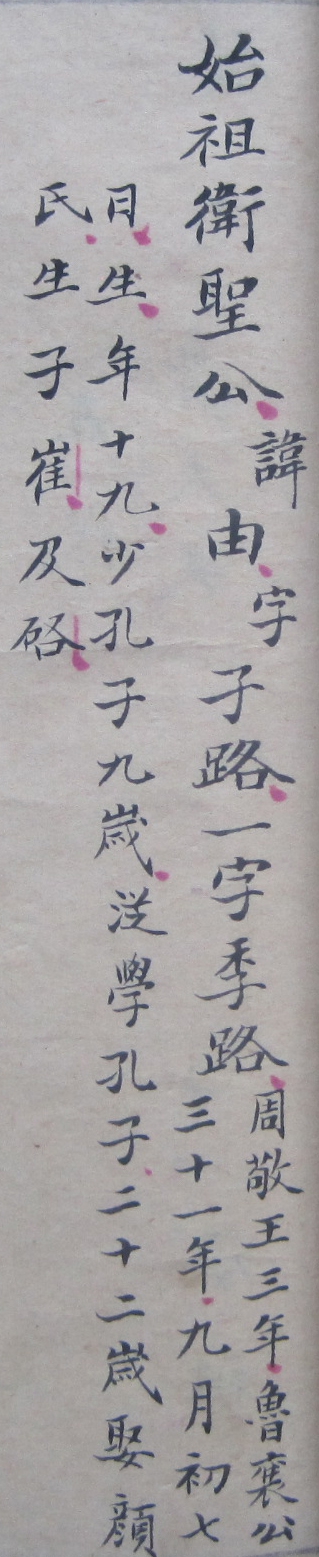 始祖衛聖公諱由字子路一字季路
周敬王三年魯襄公
三十一年九月初七
日生年十九少孔子九歳従學孔子二十二歳娶顔
氏生子崔及硌